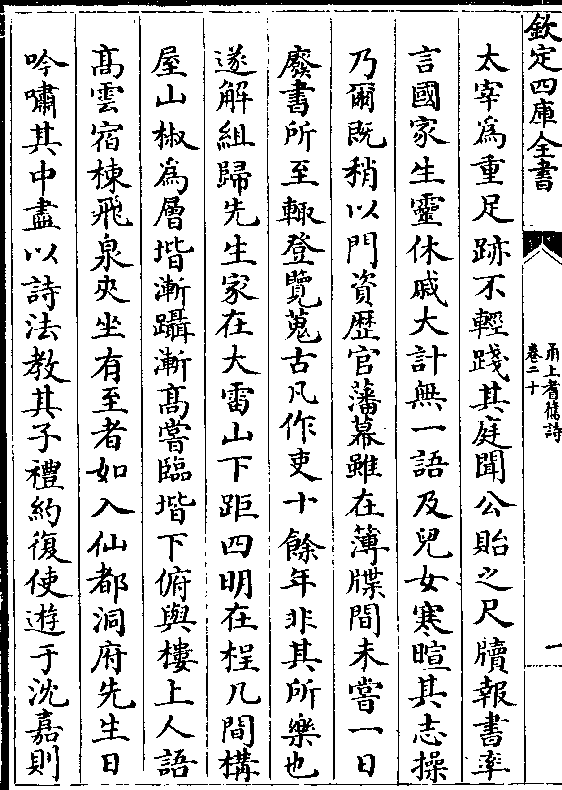 欽定四庫全書
甬上耆舊詩
卷二十
一
太宰為重足跡不輕踐其庭聞公貽之尺牘報書率
言國家生靈休戚大計無一語及兒女寒暄其志操
乃爾既稍以門資歴官藩幕雖在薄牒間未嘗一日
廢書所至輙登覽蒐古凡作吏十餘年非其所樂也
遂解組歸先生家在大雷山下距四明在桯几間構
屋山椒為層堦漸躡漸髙嘗臨堦下俯與樓上人語
髙雲宿棟飛泉夾坐有至者如入仙都洞府先生日
吟嘯其中盡以詩法教其子禮約復使遊于沈嘉則